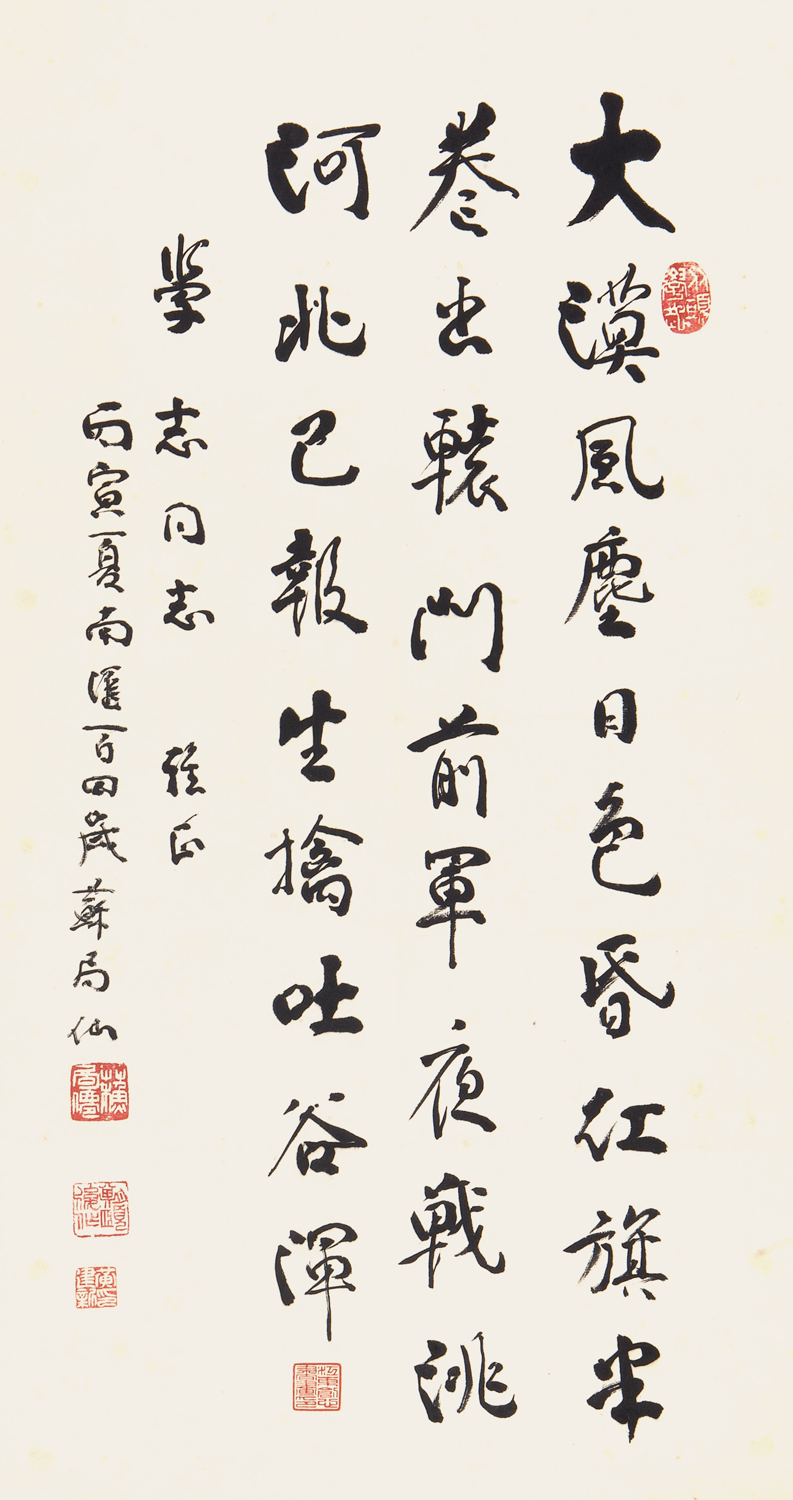 大漠風塵日色昏紅旗半
卷出轅門前軍夜戰洮
河北已報生擒吐谷渾
學志同志雅正
丙寅夏南匯百四歲蘇局仙